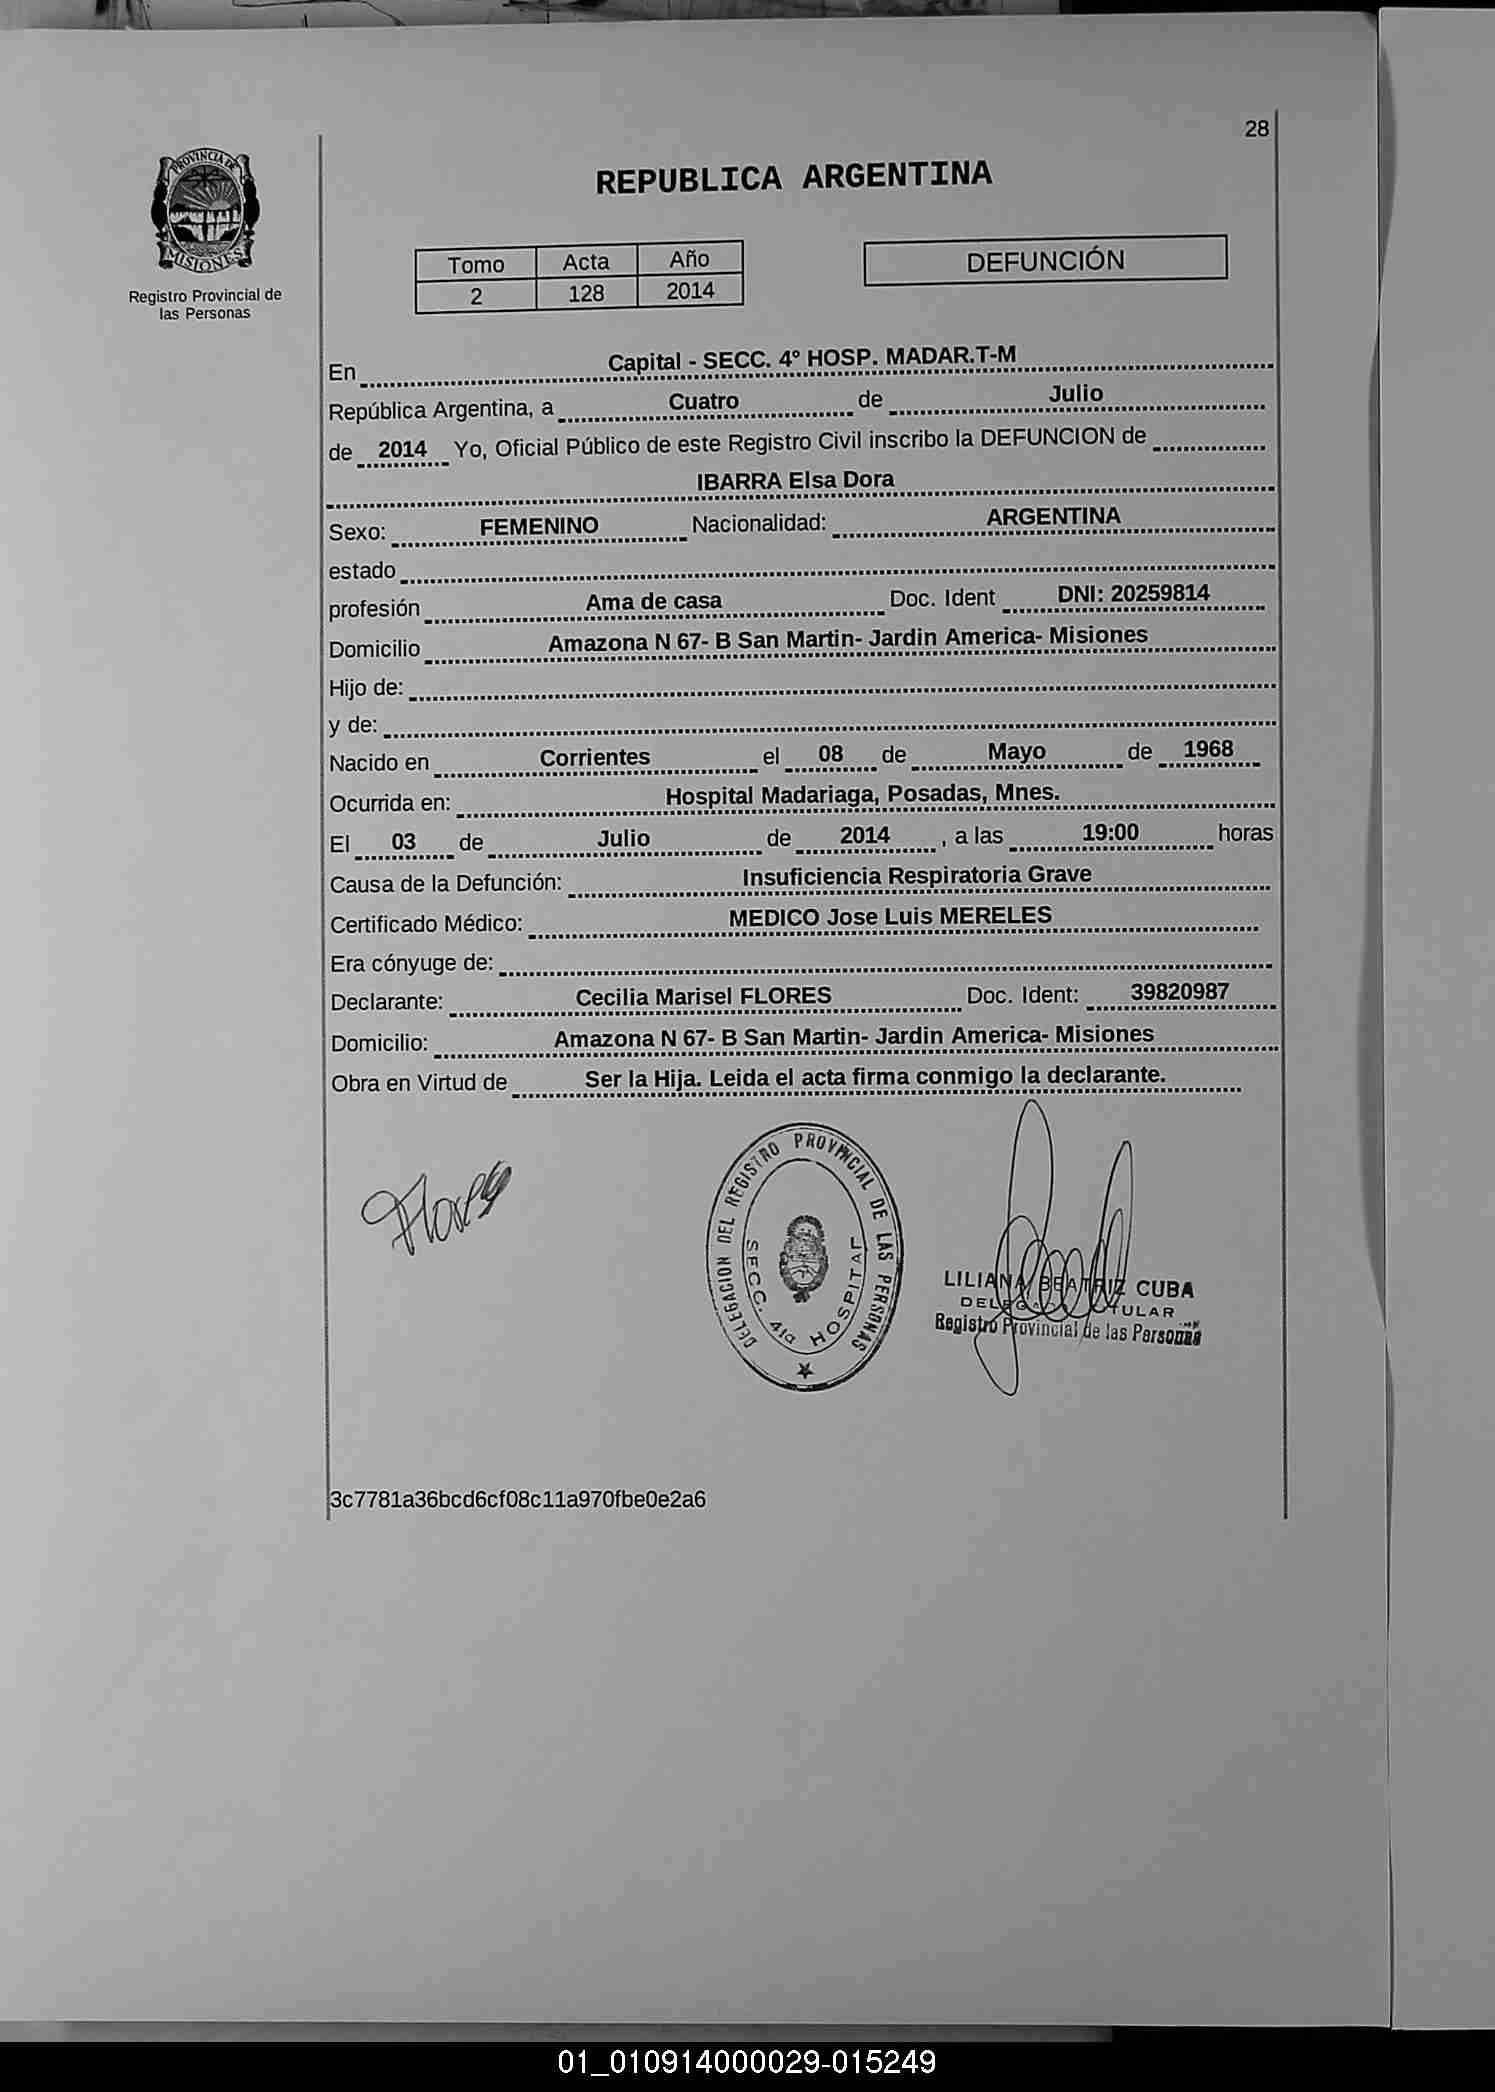 28
PROVINCIA DE
MISIONES
Registro Provincial de
las Personas
REPUBLICA ARGENTINA
Tomo Acta Año
2 128 2014
DEFUNCIÓN
En Capital - SECC. 4° HOSP. MADAR.T-M
República Argentina, a Cuatro de Julio
de 2014 Yo, Oficial Público de este Registro Civil inscribo la DEFUNCION de
IBARRA Elsa Dora
Sexo: FEMENINO Nacionalidad: ARGENTINA
estado
profesión Ama de casa Doc. Ident DNI: 20259814
Domicilio Amazona N 67- B San Martin- Jardin America- Misiones
Hijo de:
y de:
Nacido en Corrientes el 08 de Mayo de 1968
Ocurrida en: Hospital Madariaga, Posadas, Mnes.
El 03 de Julio de 2014 , a las 19:00 horas
Causa de la Defunción: Insuficiencia Respiratoria Grave
Certificado Médico: MEDICO Jose Luis MERELES
Era cónyuge de:
Declarante: Cecilia Marisel FLORES Doc. Ident: 39820987
Domicilio: Amazona N 67- B San Martin- Jardin America- Misiones
Obra en Virtud de Ser la Hija. Leida el acta firma conmigo la declarante.
Flores
DELEGACION DEL REGISTRO PROVINCIAL DE LAS PERSONAS
SECC. 4ta HOSPITAL
LILIANA BEATRIZ CUBA
Registro Provincial de las Personas
3c7781a36bcd6cf08c11a970fbe0e2a6
01_010914000029-015249